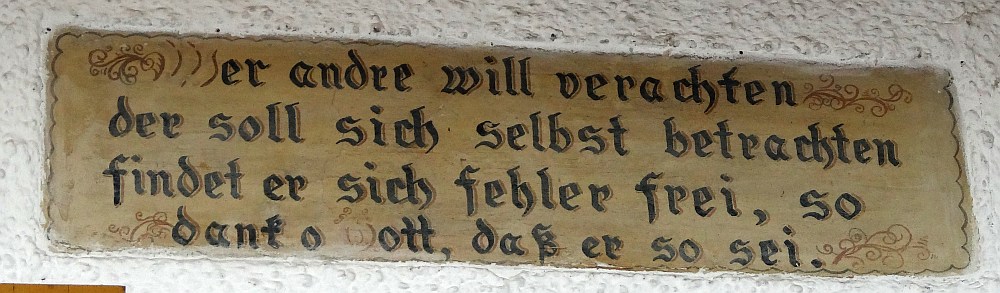 Wer andre will verachten
der soll sich selbst betrachten
findet er sich fehler frei, so
dank o Gott, daß er so sei.